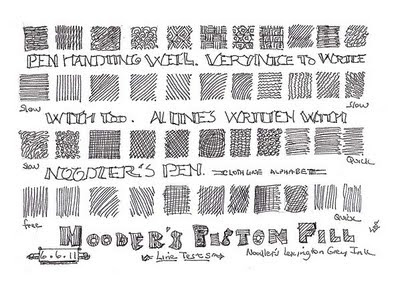 PEN HANDLING WELL. VERY NICE TO WRITE
Slow Slow
WITH TOO. ALL LINES WRITTEN WITH
Slow Quick
NOODLER'S PEN. CLOTHLINE ALPHABET
free Quick
NOODLER'S PISTOM FILL
6.6.11 Line Tests Noodler's Lexington Grey Ink